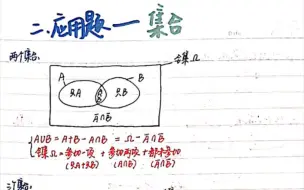 二.应用题 — 集合
两个集合:
全集Ω
A
B
只A
A∩B
只B
Ā∩B̄
A∪B = A+B-A∩B = Ω - Ā∩B̄
全集Ω = 参加一项 + 参加两项 + 都不参加
(只A+只B) (A∩B) (Ā∩B̄)